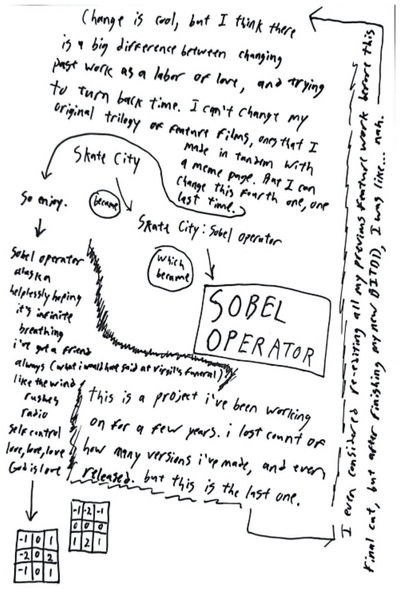 Change is cool, but I think there
is a big difference between changing
past work as a labor of love, and trying
to turn back time. I can't change my
original trilogy of feature films, ones that I
made in tandem with
a meme page. But I can
change this fourth one, one
last time.
Skate City
became
Skate City: Sobel operator
which
became
SOBEL
OPERATOR
So enjoy.
Sobel operator
alaska
helplessly hoping
it's infinite
breathing
i've got a friend
always (what i would have said at virgil's funeral)
like the wind
rushes
radio
self control
love, love, love
God is love
-1 0 1
-2 0 2
-1 0 1
-1 -2 -1
0 0 0
1 2 1
this is a project i've been working
on for a few years. i lost count of
how many versions i've made, and even
released. but this is the last one.
I even considered re-editing all my previous feature work before this
final cut, but after finishing my new BITDJ), I was like... nah.